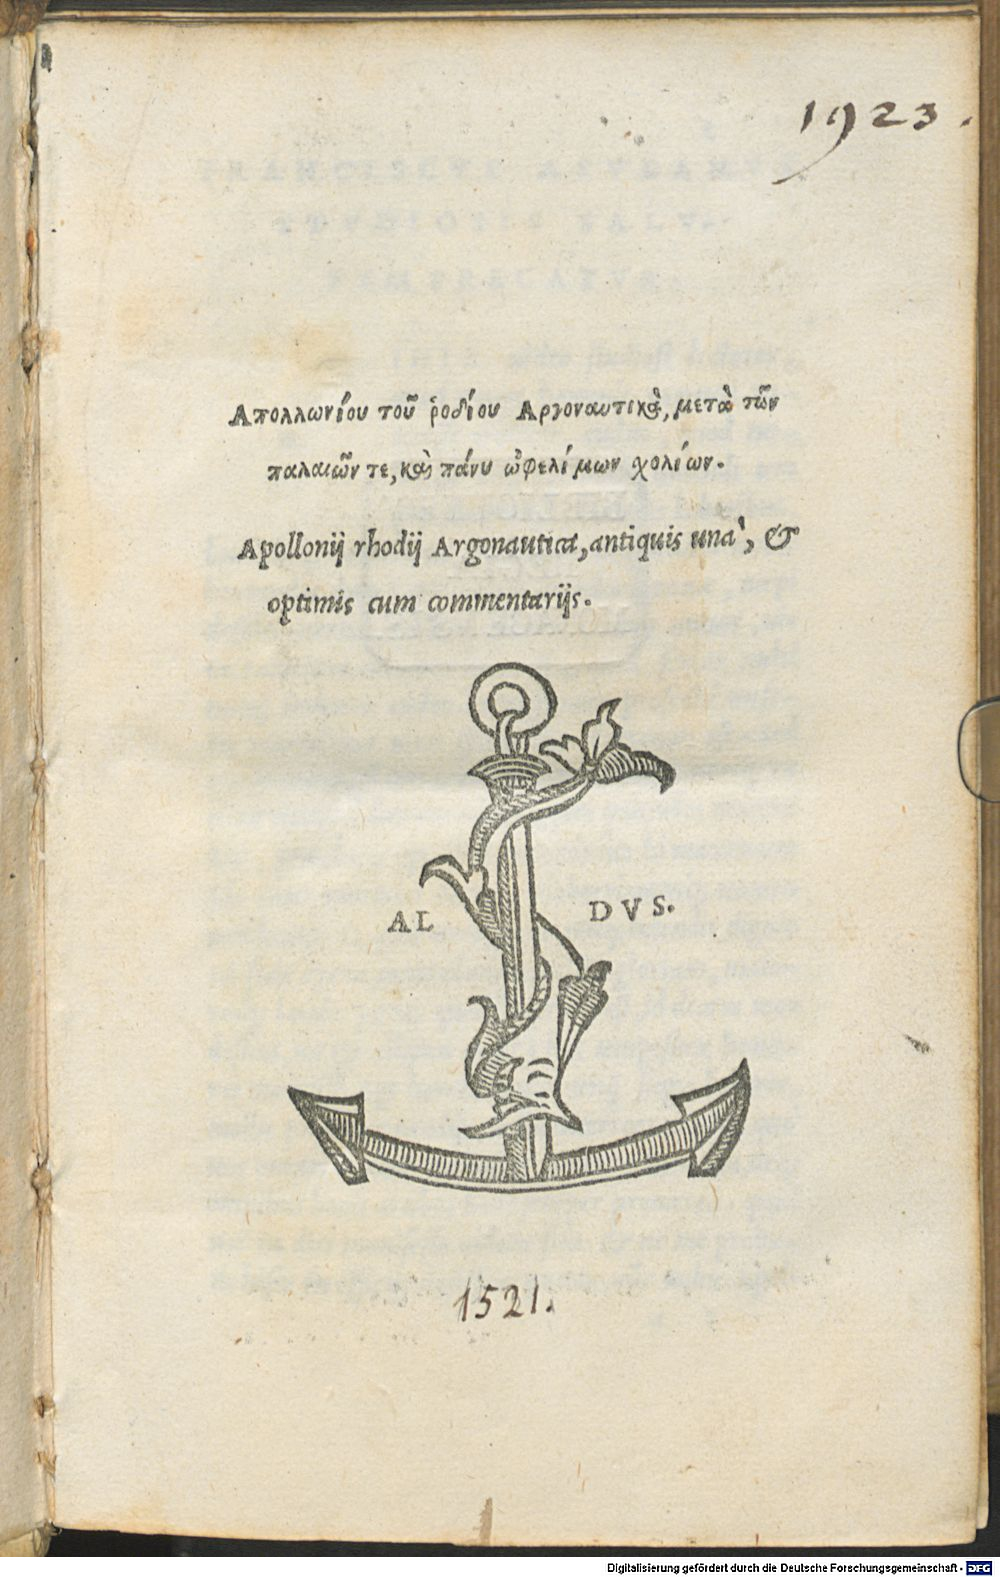 1923.
Απολλωνίου τοῦ ῥοδίου Αργοναυτικὰ, μετὰ τῶν
παλαιῶν τε, καὶ πάνυ ὠφελίμων σχολίων.
Apollonij rhodij Argonautica, antiquis unà, &
optimis cum commentarijs.
AL DVS.
1521.
Digitalisierung gefördert durch die Deutsche Forschungsgemeinschaft - DFG